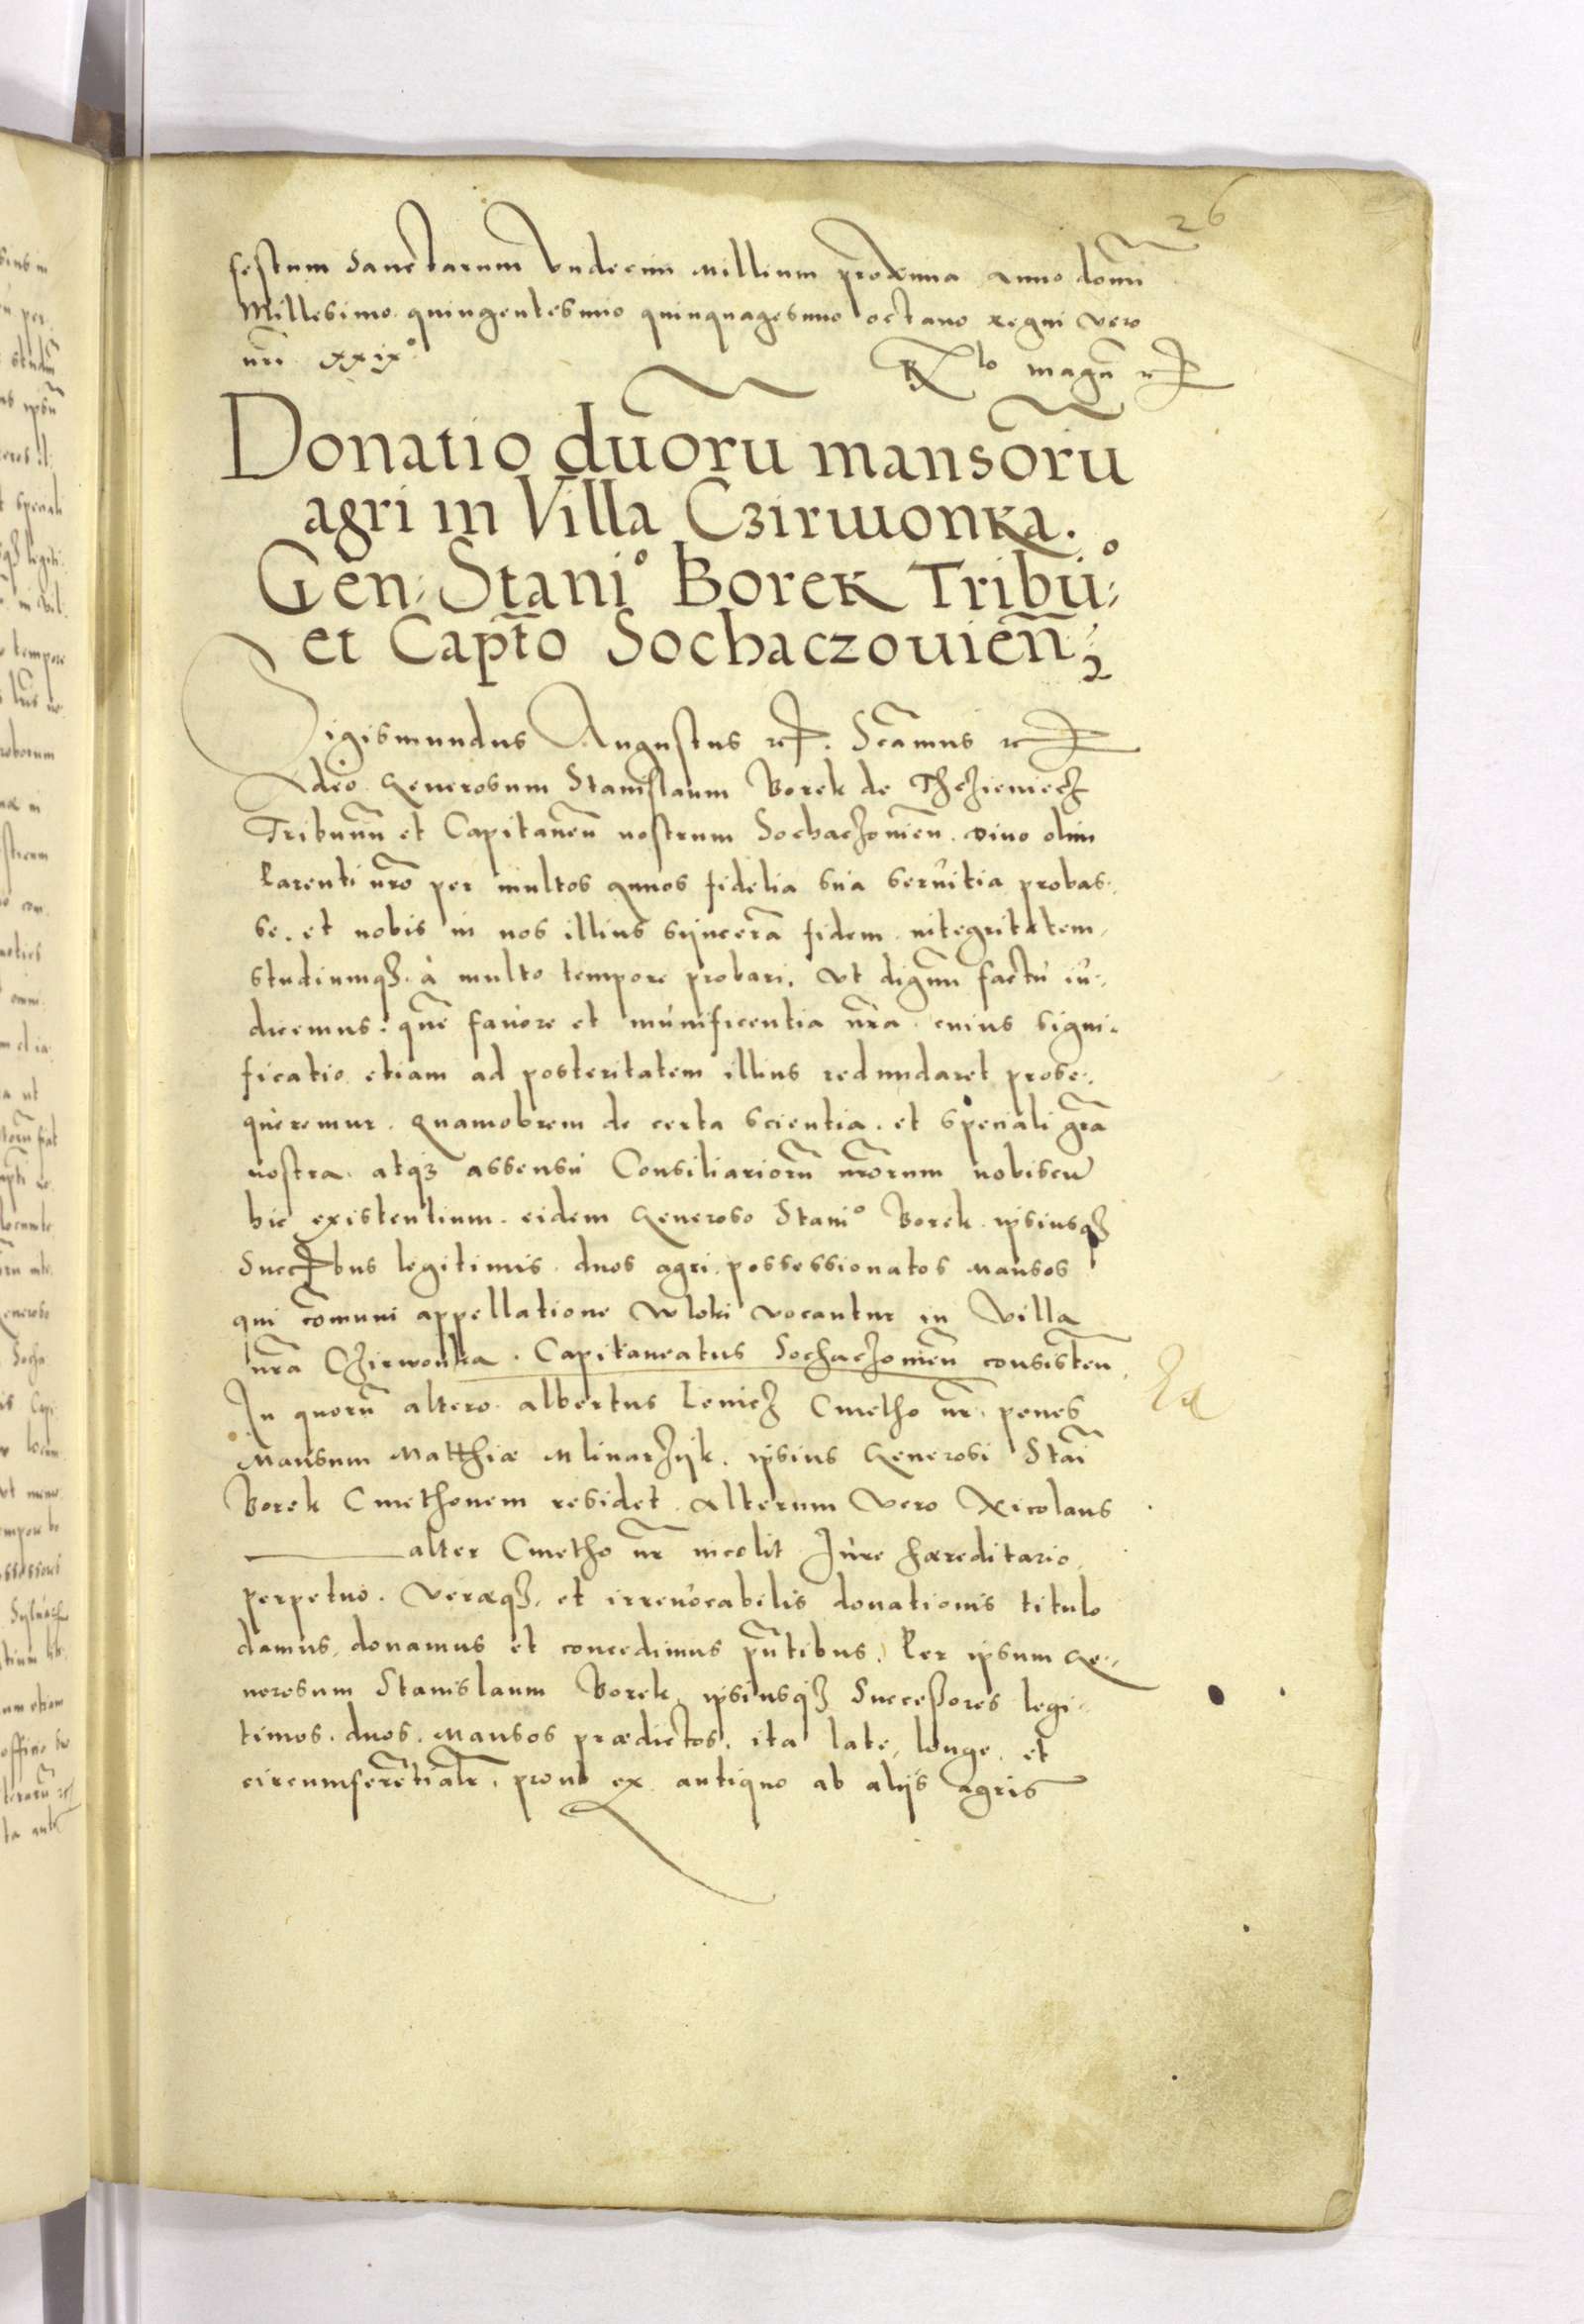 26
festum Sanctarum Undecim Millium proxima Anno domi͂
Millesimo quingentesimo quinquagesimo octavo regni vero
nr͂i xxix°
mag͂n
Donatio duor͂u mansor͂u
agri in Villa Czirwonka.
Gen: Stani° Borek Tribu͂°:
et Capt͂o Sochaczouien͂:
Sigismundus Augustus etc. S͂camus etc
Adeo Generosum Stanislaum Borek de Thczieniecz
Tribunu͂ et Capitaneu͂ nostrum Sochaczouien͂. Divo olim
Parenti nr͂o per multos Annos fidelia sua servitia probas:
se. et nobis in nos illius synceram͂ fidem integritatem,
studiumqz. à multo tempore probari, Ut dignu͂ factu iu:
dicemus. que͂ favore et munificentia nr͂a cuius signi:
ficatio etiam ad posteritatem illius redundaret prose:
queremur. Quamobrem de certa scientia. et speciali gr͂a
nostra. atqz assensu Consiliarior͂u nr͂orum nobiscu͂
hic existentium. eidem Generoso Stani° Borek. ipsiusqz
Succribus legitimis. duos agri possessionatos Mansos
qui co͂muni appellatione Wloki vocantur in Villa
nr͂a Czirwonka. Capitaneatus Sochaczouien͂ consisten͂.
In quor͂u altero Albertus Leniez Cmetho nr͂. penes
Mansum Matthiæ Mlinarzyk. ipsius Generosi Stai͂
Borek Cmethonem residet. Alterum vero Nicolaus
alter Cmetho nr͂ incolit Iure hæreditario,
perpetuo. veræqz. et irrevocabilis donationis titulo
damus, donamus et concedimus pn͂tibus. Per ipsum Ge:
nerosum Stanislaum Borek, ipsiusqz Successores legi:
timos. duos. Mansos prædictos. ita late, longe. et
circumferen͂tialr͂. prout ex antiquo ab alijs agris